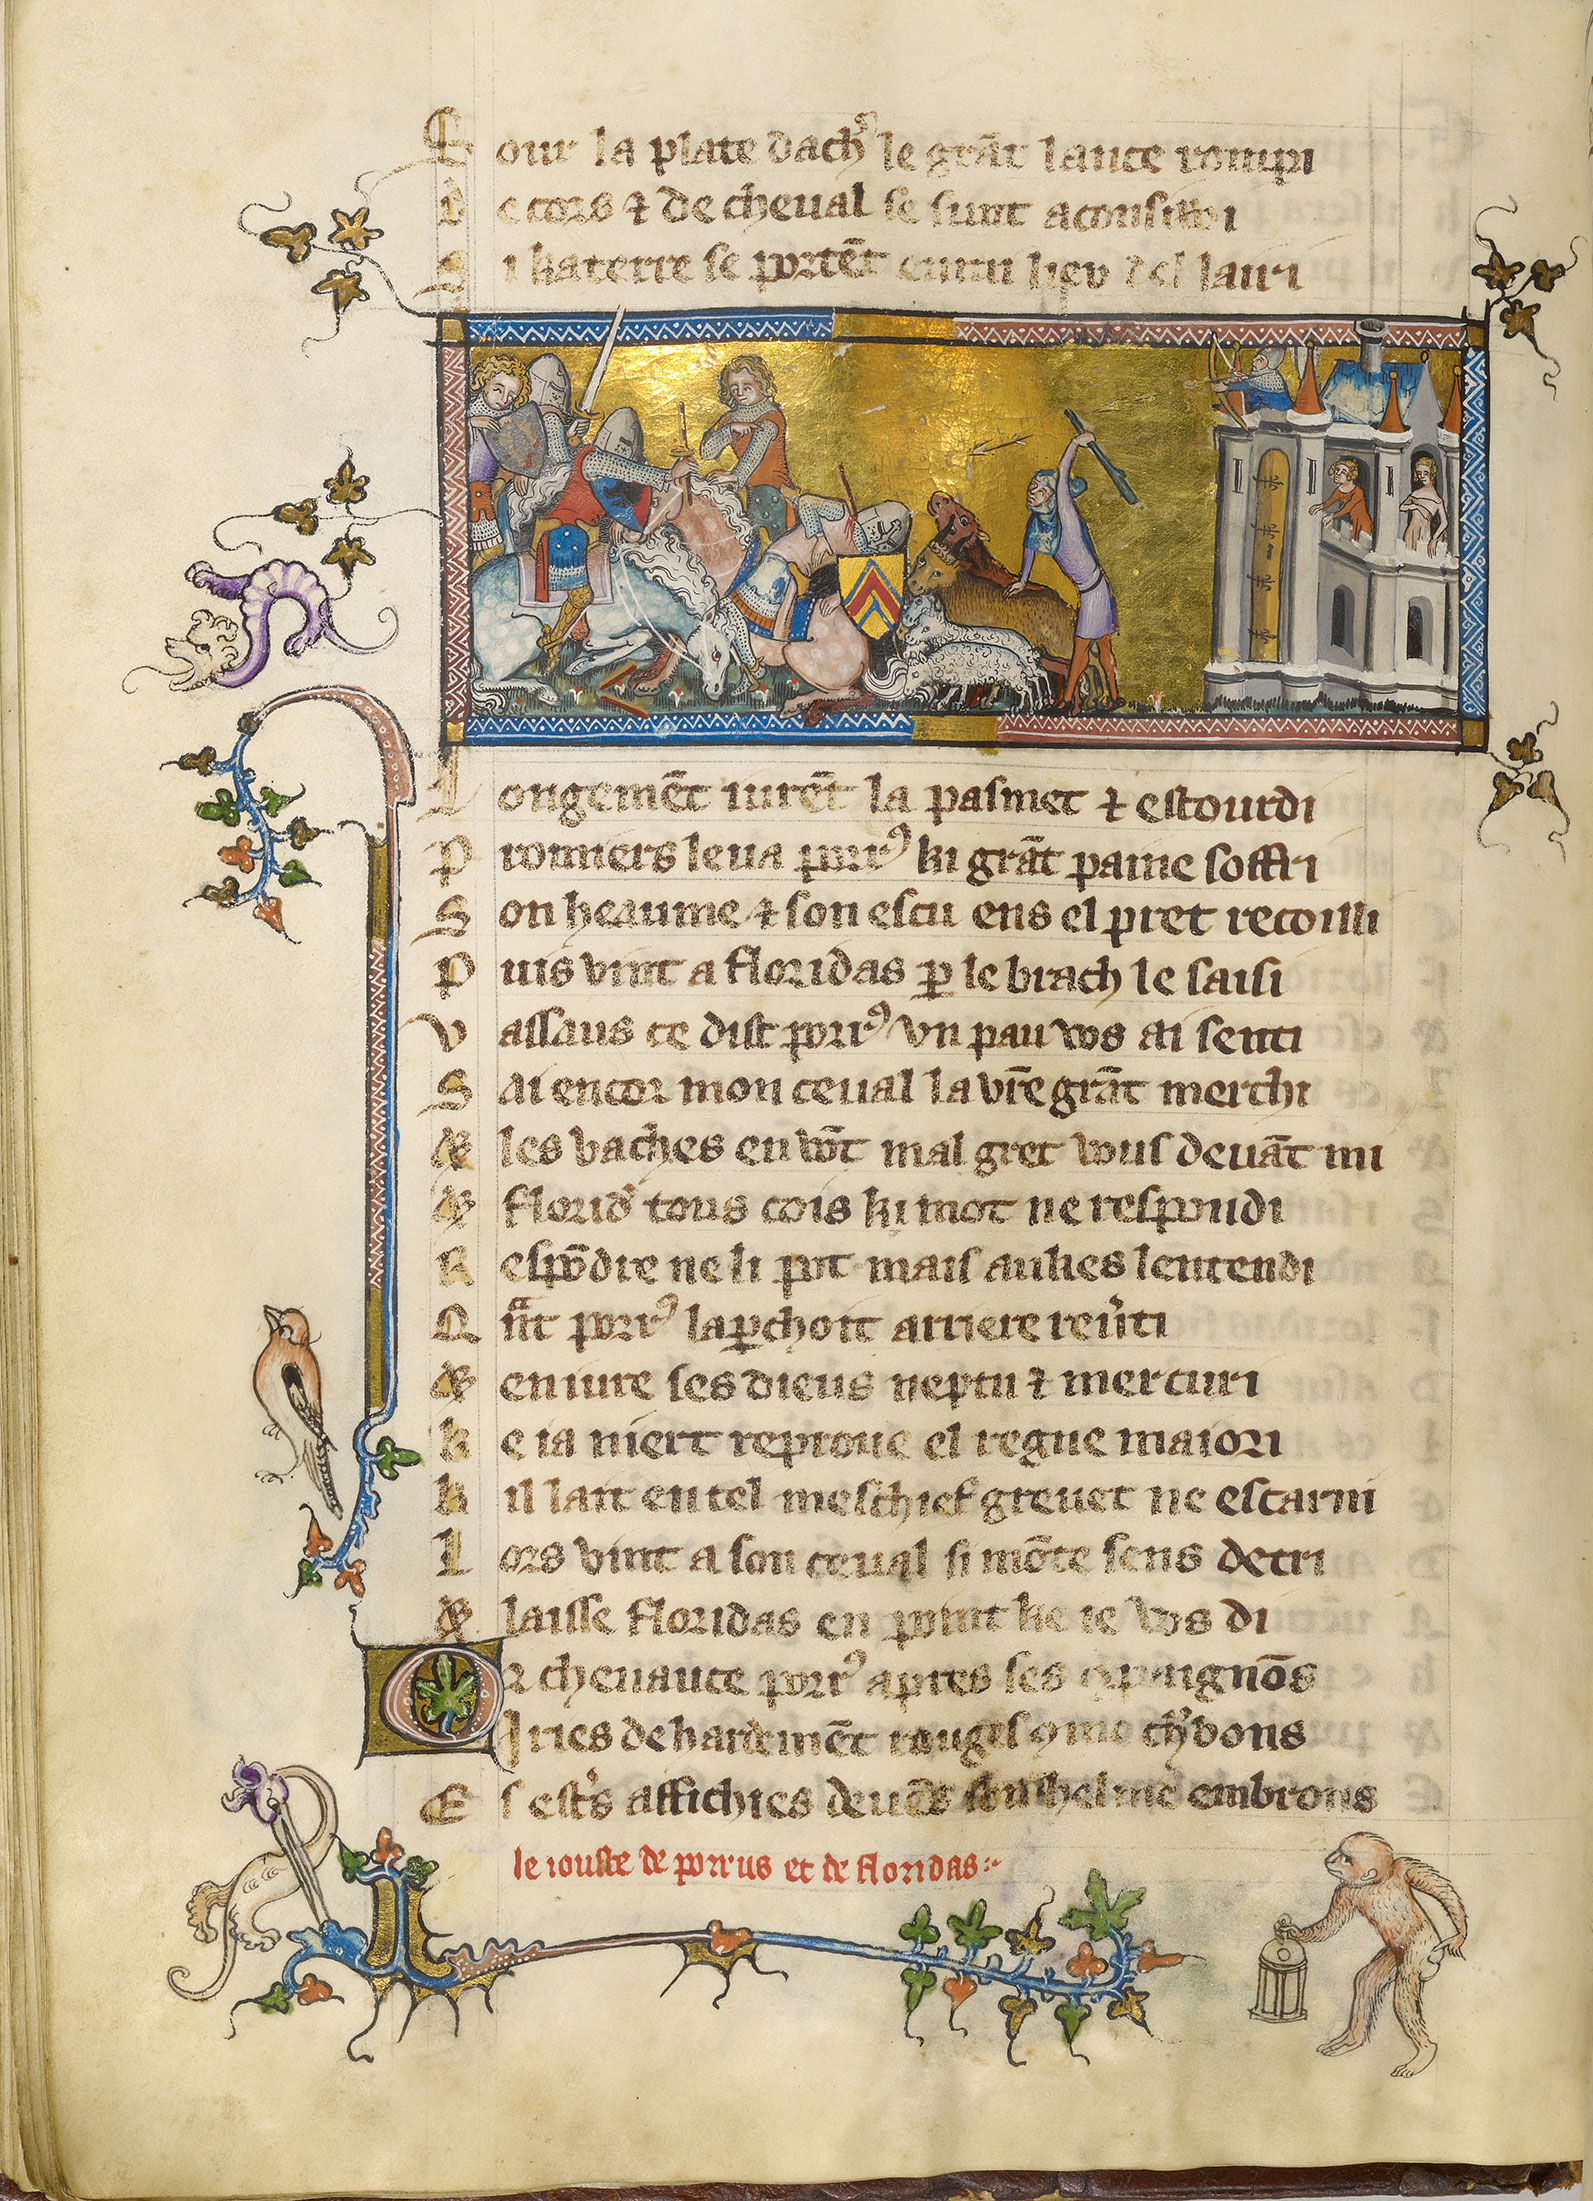 Sour la plate dachʼ le grāt lance rompi
De cors ⁊ de cheual se sunt aconsiwi
Si ka terre se portēt lieu lauri
Longemēt iurēt la pasmet ⁊ estourdi
Promiers leua porrꝰ ki grāt paine soffri
Son heaume ⁊ son escu ens el pret recoilli
Puis vint a floridas ꝑ le brach le saisi
Vassaus ce dist porrꝰ vn pau vos ai senti
Sai encor mon ceual la vr̄e grāt merchi
& les vaches en vōt mal gret vous deuāt mi
& floridʼ tous cois ki mot ne respondi
Respōdire ne li pot mais aukes lentendi
Qᵃnt porrꝰ laꝑchoit arriere reuʼti
& en iure ses dieus neptu ⁊ mercuri
ke ia niert reproue el regne maiori
kil lait en tel meschief greuet ne escarni
Lors vint a son ceual si mōte sens detri
& laisse floridas en point ke ie vos di
Or cheuauce porrꝰ apres ses ꝯpaignōs
Iries de hardemēt rouges ꝯme chʼbons
Es estʼs affichies deuēs son helme embrons
le iouste de porrus et de floridas